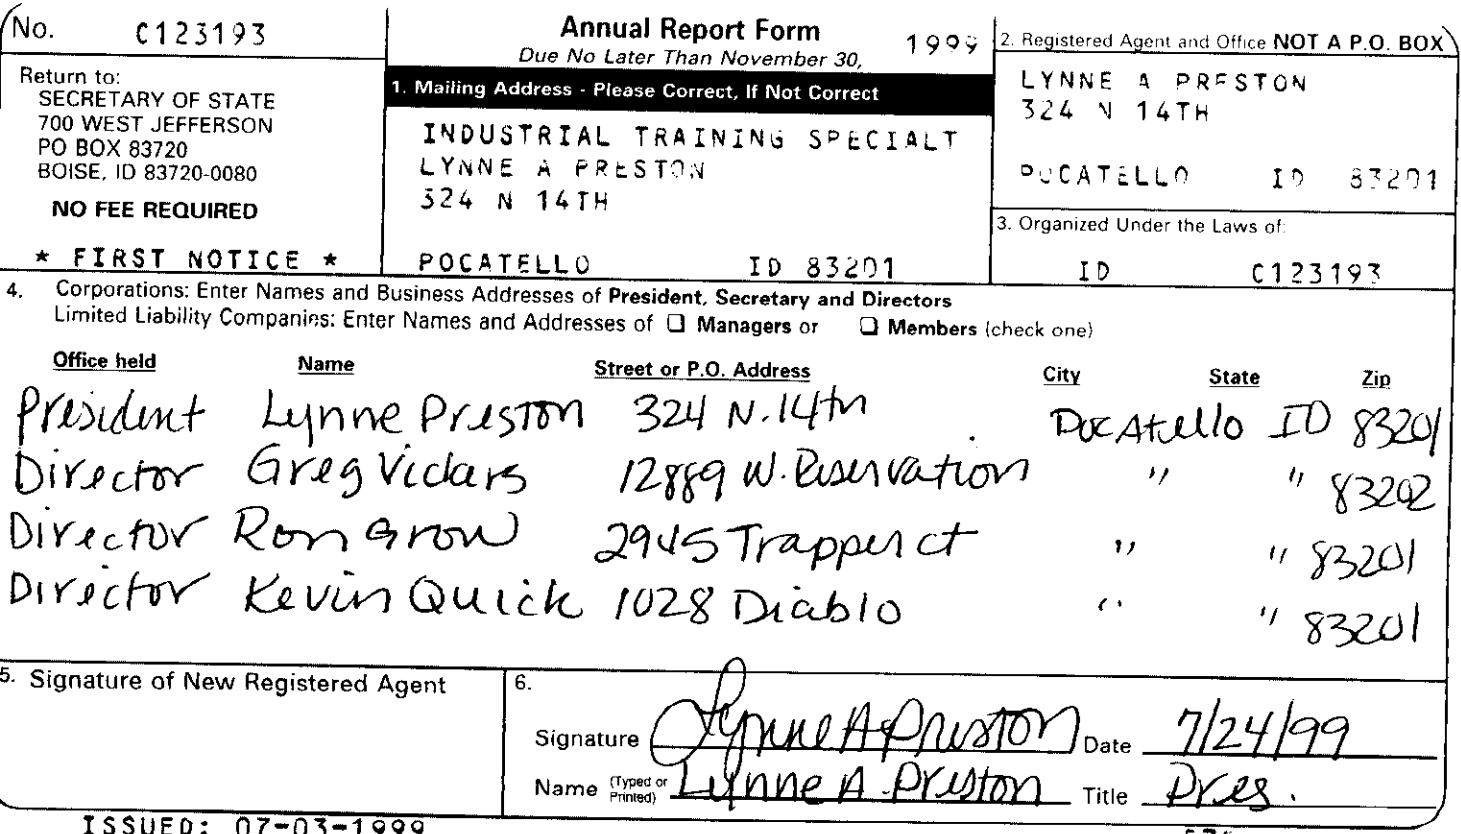 No. C123193
Return to:
SECRETARY OF STATE
700 WEST JEFFERSON
PO BOX 83720
BOISE, ID 83720-0080
NO FEE REQUIRED
* FIRST NOTICE *
Annual Report Form 1999
Due No Later Than November 30,
1. Mailing Address - Please Correct, If Not Correct
INDUSTRIAL TRAINING SPECIALT
LYNNE A PRESTON
324 N 14TH
POCATELLO ID 83201
2. Registered Agent and Office NOT A P.O. BOX
LYNNE A PRESTON
324 N 14TH
POCATELLO ID 83201
3. Organized Under the Laws of:
ID C123193
4. Corporations: Enter Names and Business Addresses of President, Secretary and Directors
Limited Liability Companies: Enter Names and Addresses of ❑ Managers or ❑ Members (check one)
Office held Name Street or P.O. Address City State Zip
President Lynne Preston 324 N. 14th Pocatello ID 83201
Director Greg Vickers 12889 W. Reservation " " 83202
Director Ron Grow 2945 Trapper ct " " 83201
Director Kevin Quick 1028 Diablo " " 83201
5. Signature of New Registered Agent
6.
Signature Lynne A Preston Date 7/24/99
Name (Typed or Printed) Lynne A. Preston Title Pres.
ISSUED: 07-03-1999